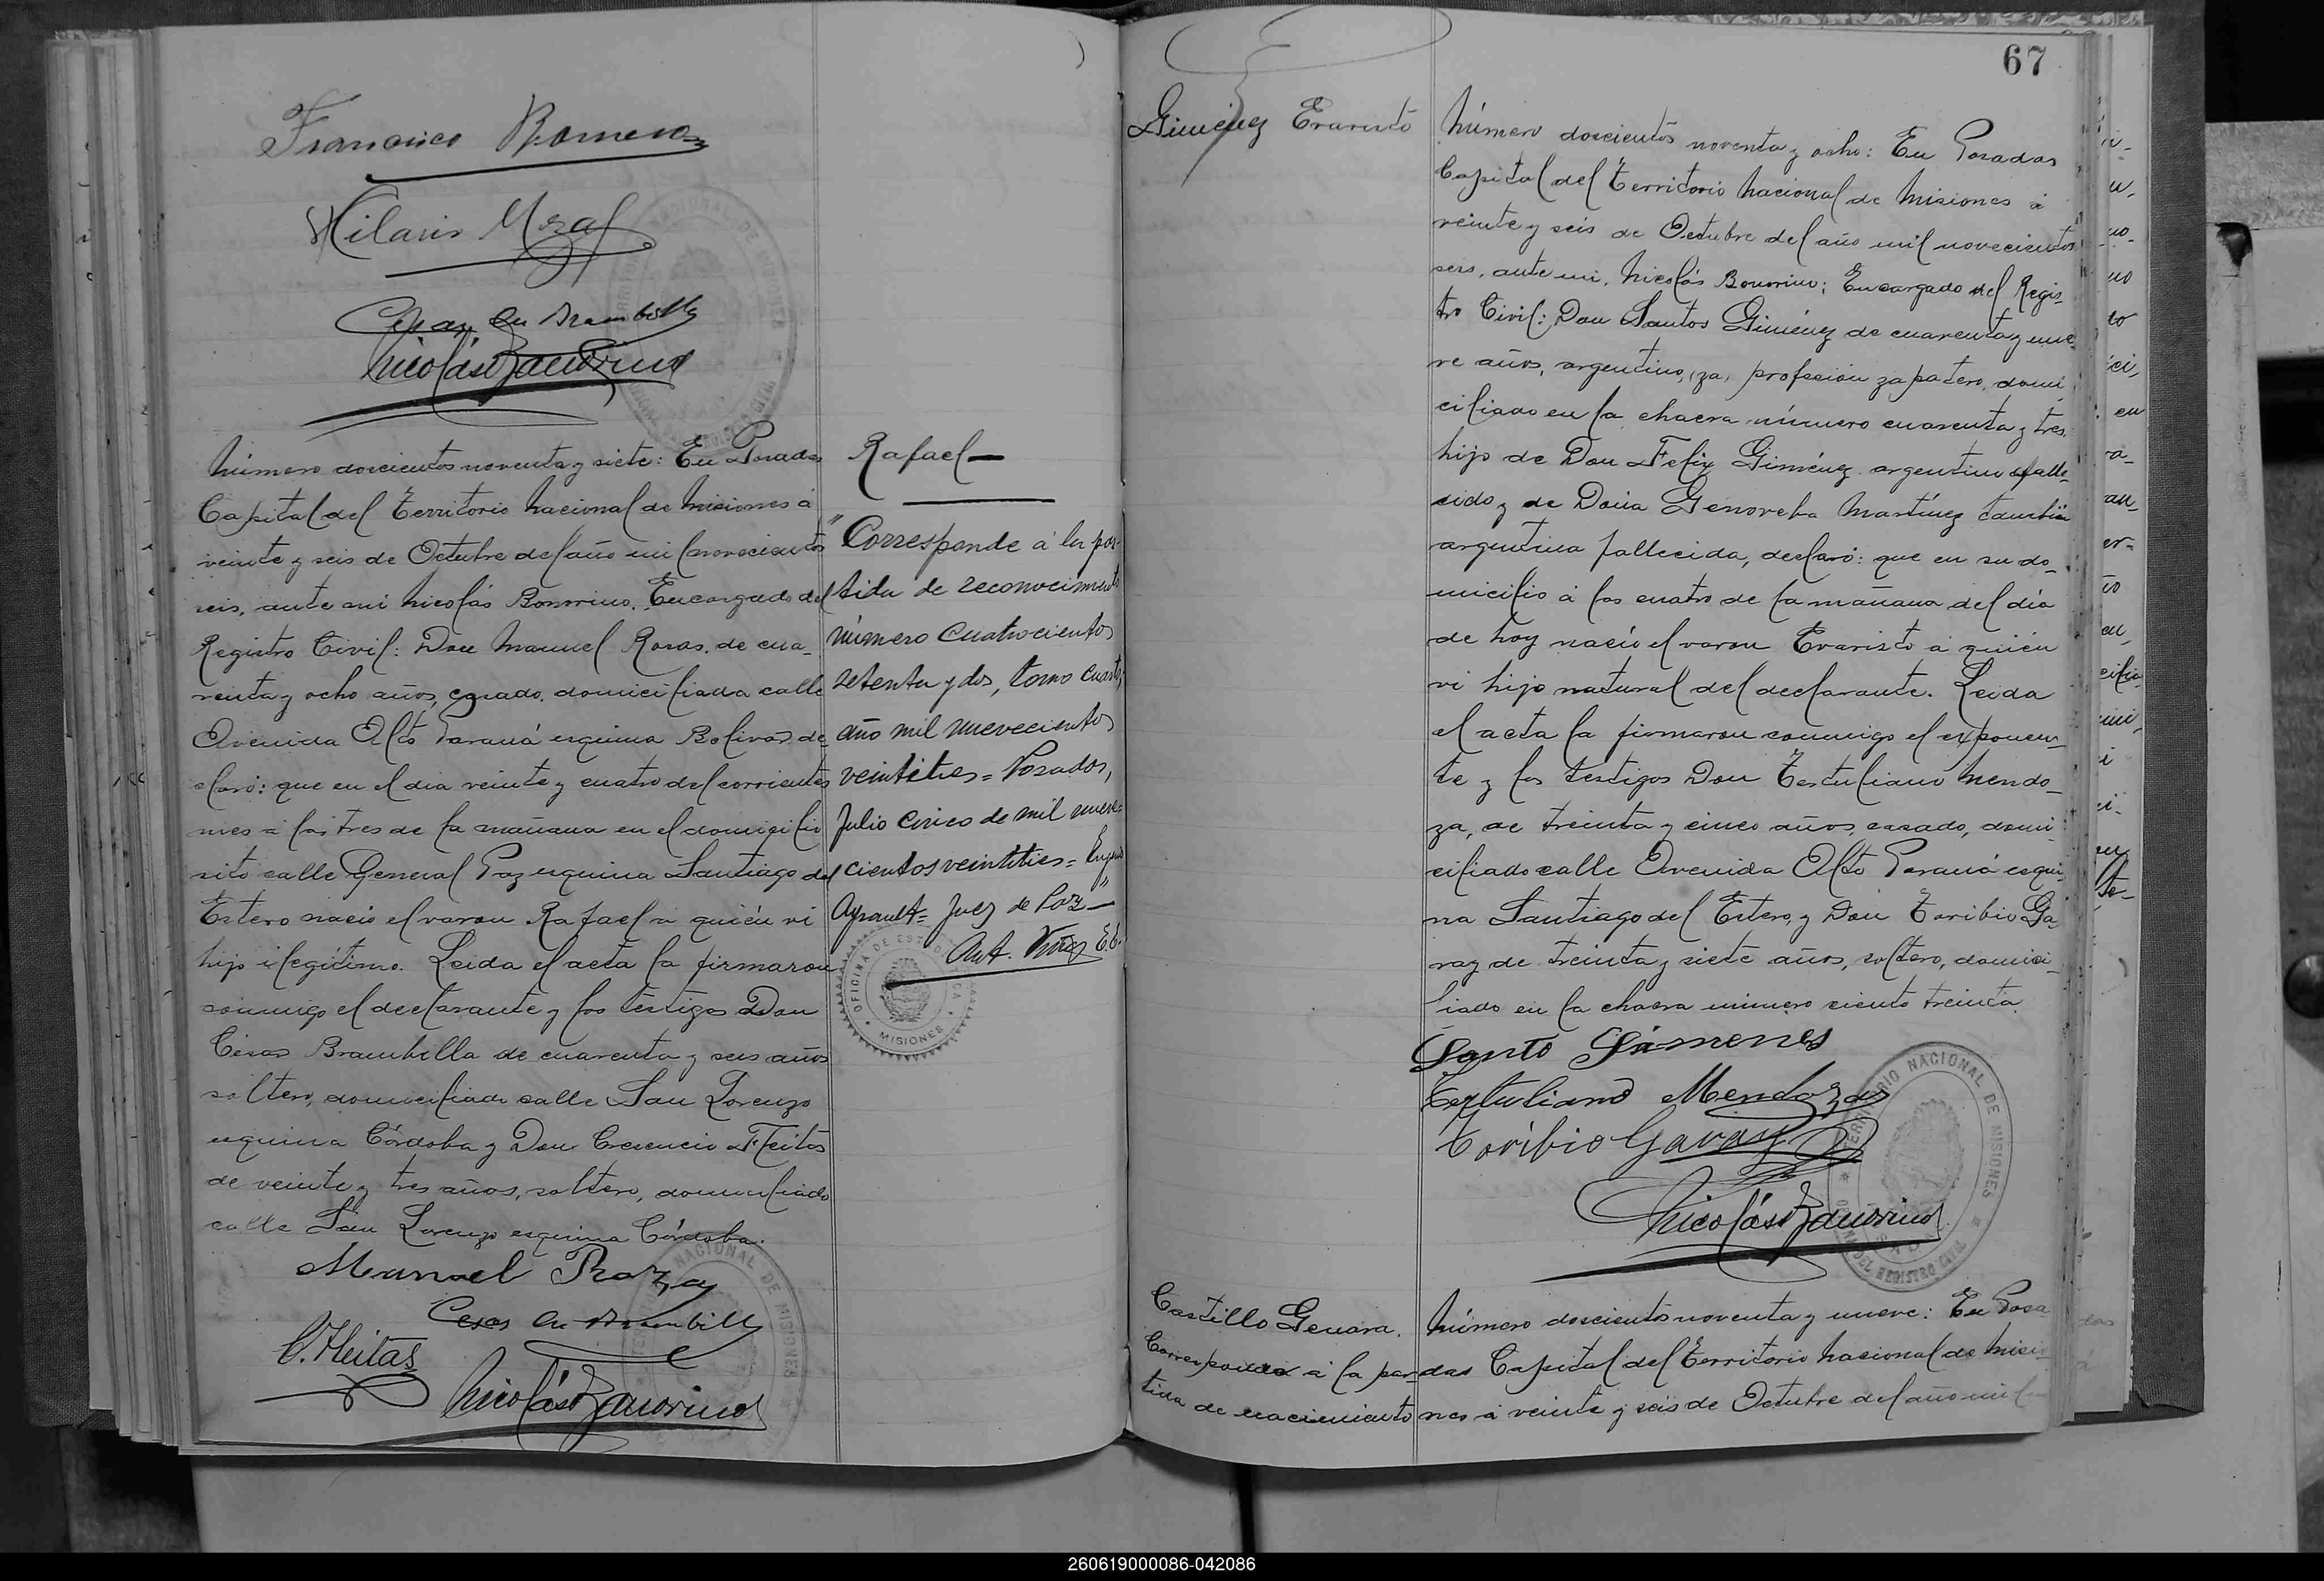 Francisco Romero
Hilario
Cesar Brambilla
Nicolás Bonorino
Número doscientos noventa y siete: En Posadas
Capital del Territorio Nacional de Misiones á
veinte y seis de Octubre del año mil novecientos
seis, ante mi Nicolás Bonorino, Encargado del
Registro Civil: Don Manuel Rosas, de cua-
renta y ocho años, casado, domiciliado calle
Avenida Alto Paraná esquina Bolivar, de-
claró: que en el dia veinte y cuatro del corriente
mes á las tres de la mañana en el domicilio
sito calle General Paz esquina Santiago del
Estero nació el varon Rafael á quién vi
hijo ilegítimo. Leida el acta la firmaron
conmigo el declarante y los testigos Don
César Brambilla de cuarenta y seis años
soltero, domiciliado calle San Lorenzo
esquina Córdoba y Don Crecencio Fleitas
de veinte y tres años, soltero, domiciliado
calle San Lorenzo esquina Córdoba.
Manuel Rozas
Cesar Brambilla
C. Fleitas
Nicolás Bonorino
Rafael
"Corresponde á la par-
tida de reconocimiento
número cuatrocientos
setenta y dos, tomo cuarto,
año mil nuevecientos
veintitres = Posadas,
Julio cinco de mil nueve-
cientos veintitres =
Ayrault = Juez de Paz"
OFICINA DE ESTADISTICA
MISIONES
67
Giménez Evaristo
Número doscientos noventa y ocho: En Posadas
Capital del Territorio Nacional de Misiones á
veinte y seis de Octubre del año mil novecientos
seis, ante mi, Nicolás Bonorino, Encargado del Regis-
tro Civil: Don Santos Giménez de cuarenta y nue-
ve años, argentino, (za) profesión zapatero, domi-
ciliado en la chacra número cuarenta y tres,
hijo de Don Felix Giménez argentino falle-
cido y de Doña Genoveba Martínez también
argentina fallecida, declaró: que en su do-
micilio á las cuatro de la mañana del día
de hoy nació el varon Evaristo á quién
vi hijo natural del declarante. Leida
el acta la firmaron conmigo el exponen-
te y los testigos Don Tertuliano Mendo-
za, de treinta y cinco años, casado, domi-
ciliado calle Avenida Alto Paraná esqui-
na Santiago del Estero, y Don Toribio Ga-
ray de treinta y siete años, soltero, domici-
liado en la chacra número ciento treinta.
Santo Gimenes
Tertuliano Mendoza
Toribio Garay
Nicolás Bonorino
TERRITORIO NACIONAL DE MISIONES
DEL REGISTRO CIVIL
Castillo Genara.
Corresponde á la par-
tida de nacimiento
Número doscientos noventa y nueve: En Posa-
das Capital del Territorio Nacional de Misio-
nes á veinte y seis de Octubre del año mil
260619000086-042086